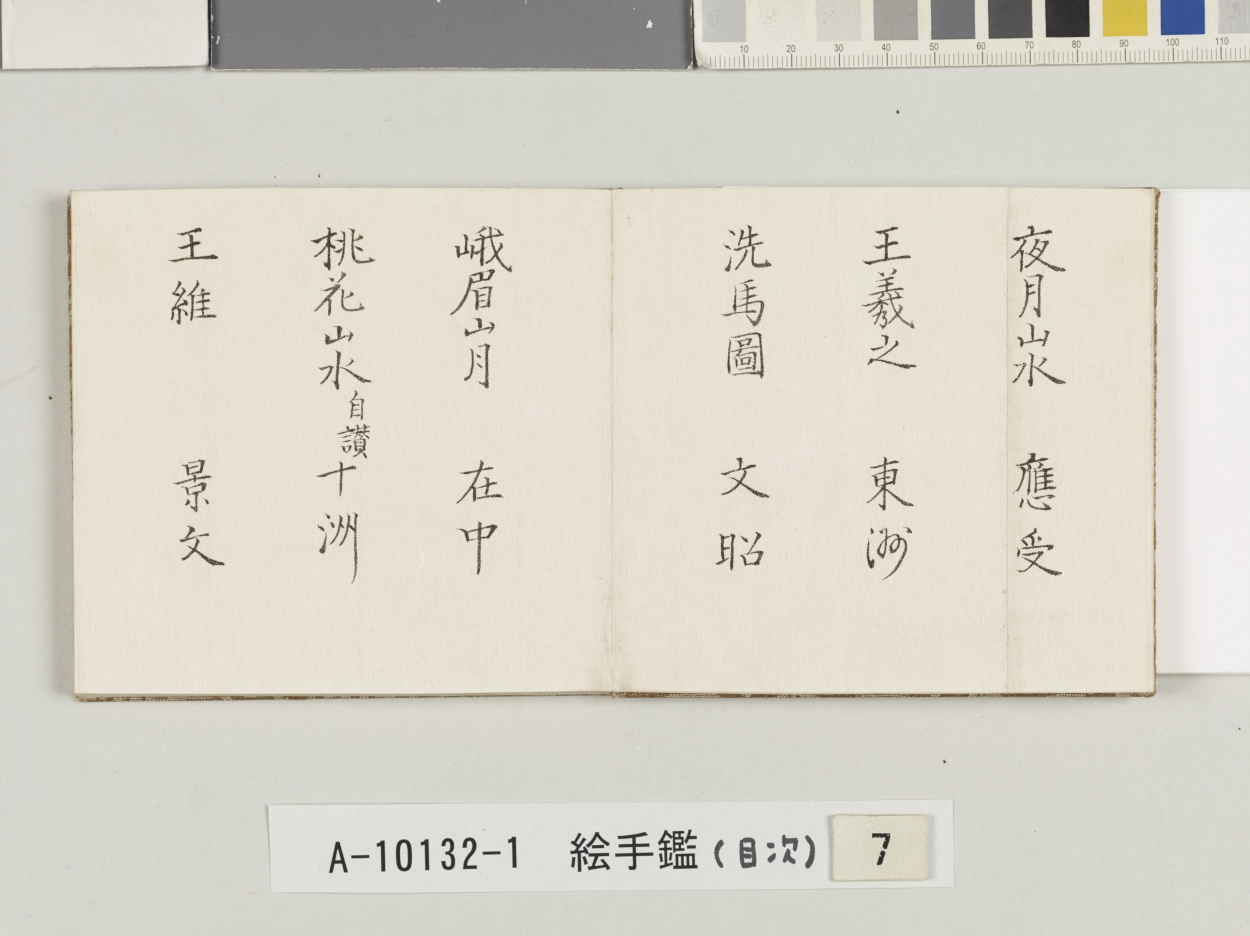 夜月山水 應受
王羲之 東洲
洗馬圖 文昭
峨眉山月 在中
桃花山水 自讃 十洲
王維 景文
A-10132-1 絵手鑑(目次) 7
10 20 30 40 50 60 70 80 90 100 110